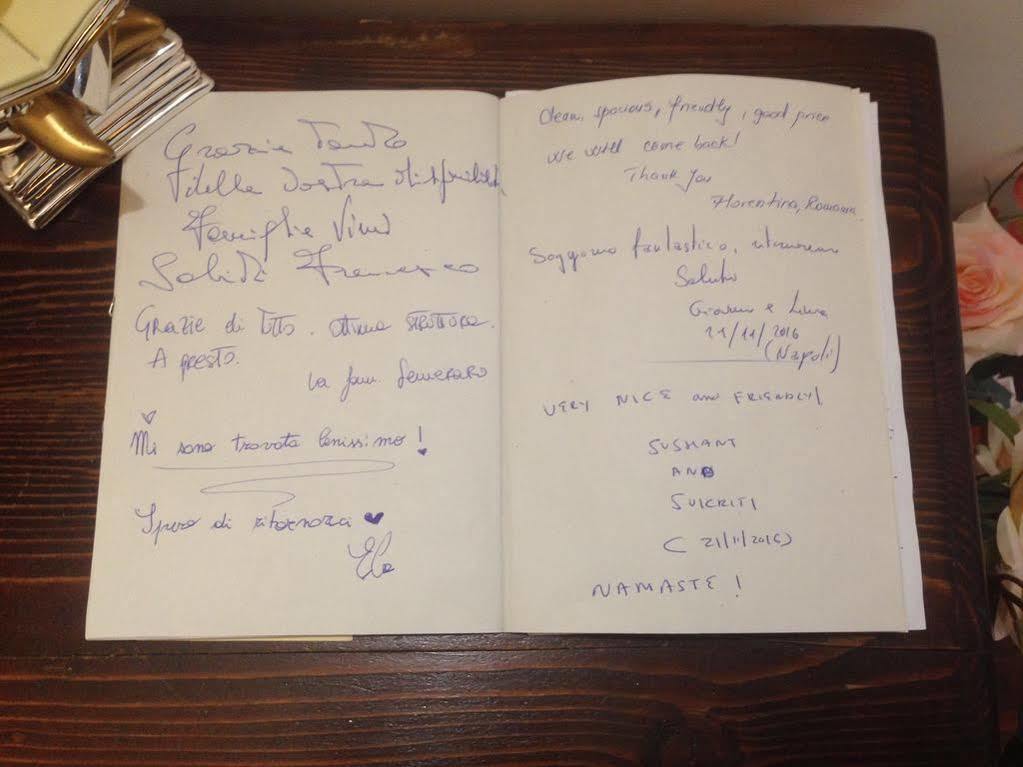 Grazie Tanto
della Vostra disponibilità
Famiglia Vinci
Saluti Francesco
GRAZIE di tutto. Ottima STRUTTURA.
A PRESTO.
La fam. Semeraro
Mi sono trovata benissimo!
Spero di ritornarci
Clean, spacious, friendly, good price
We will come back!
Thank You
Florentina, Romania
Soggiorno fantastico, ritorneremo
Saluti
Gianni e
21/11/2016
(Napoli)
VERY NICE and FRIENDLY!
SUSHANT
AND
SUKRITI
(21/11/2016)
NAMASTE!